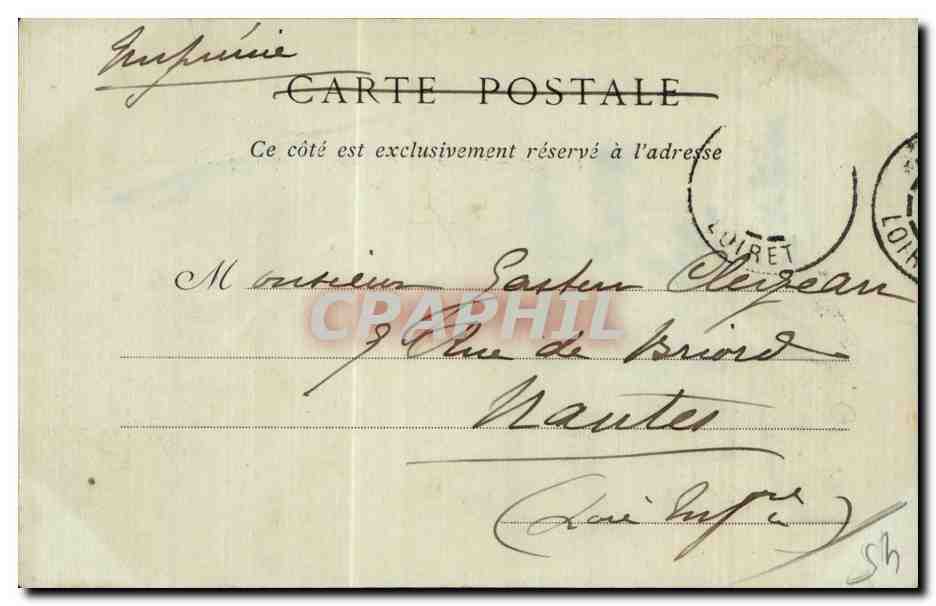 Imprimé
CARTE POSTALE
Ce côté est exclusivement réservé à l'adresse
LOIRET
LOIR
Monsieur Gaston Clergeau
CPRAPHIL
9 Rue de Briord
Nantes
(Loire Infre)
54